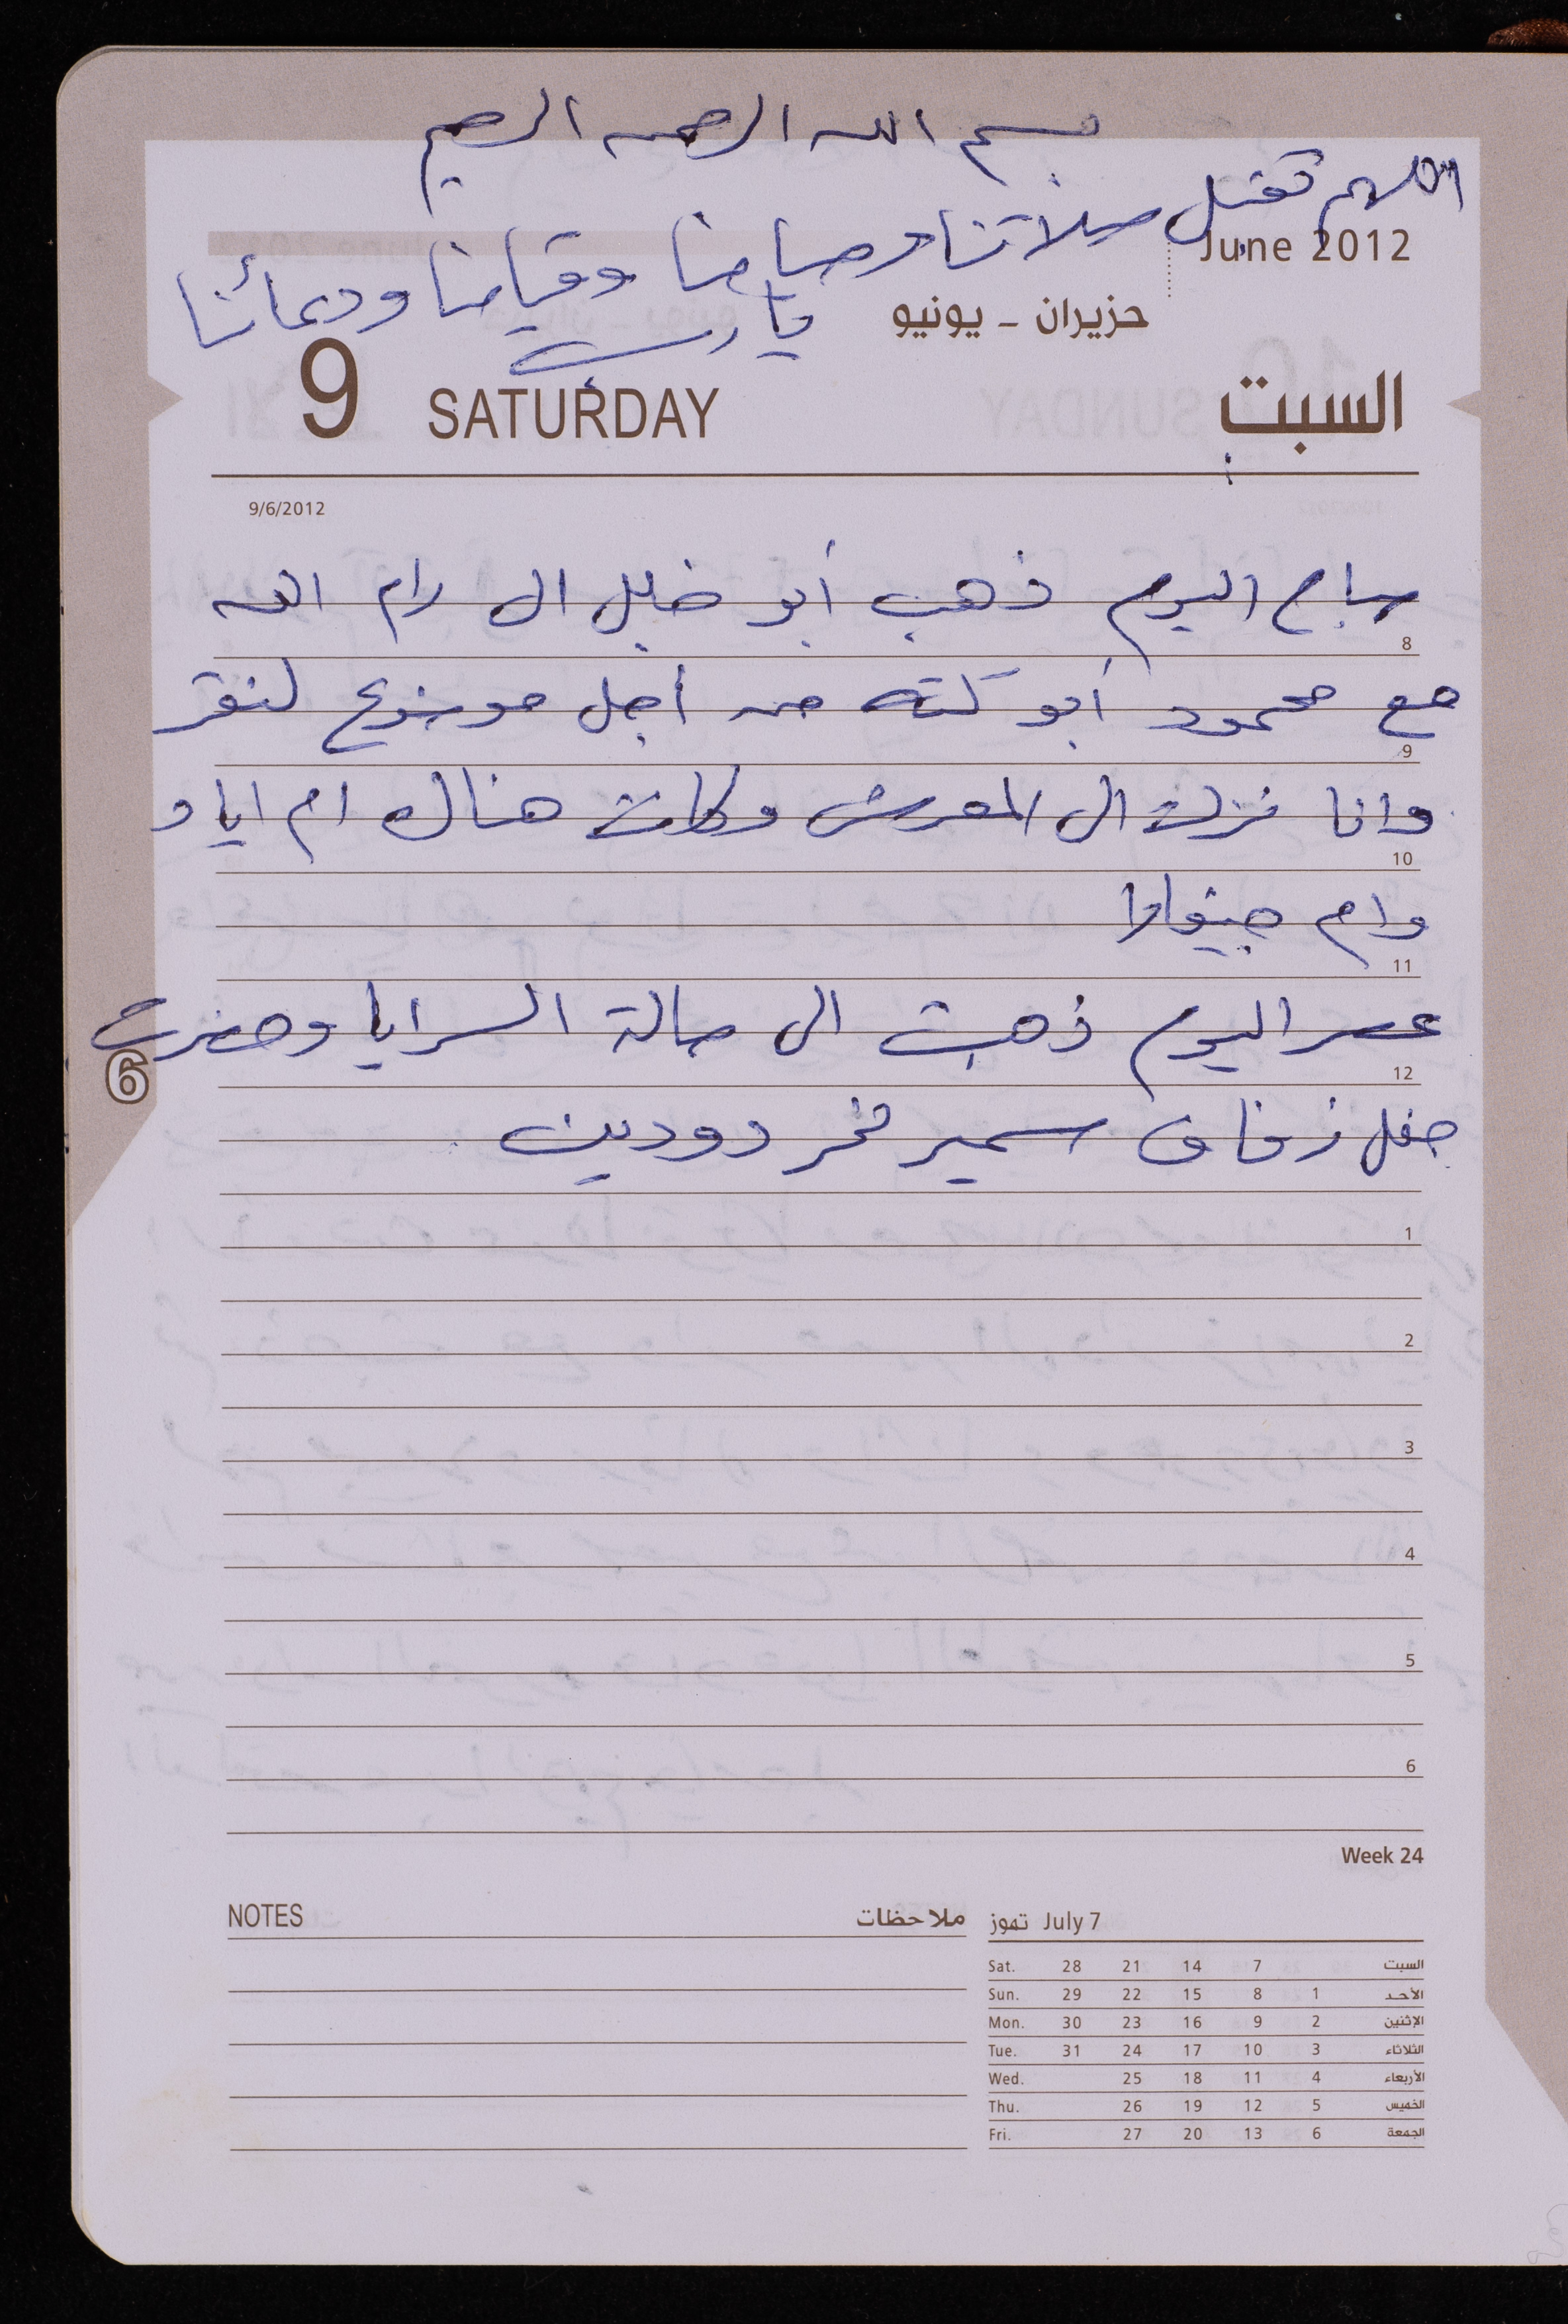 بسم الله الرحمن الرحيم
اللهم تقبل صلاتنا وصيامنا وقيامنا ودعائنا
يا رب
June 2012
حزيران - يونيو
9 SATURDAY السبت
9/6/2012
صباح اليوم ذهب أبو خليل الى رام الله
8
مع محمود أبو كته من أجل موضوع
9
وانا نزلت الى المعرش وكانت هناك ام اياد
10
وام جيفارا
11
عصر اليوم ذهبت الى صالة السرايا وحضرت
6
12
حفل زفاف سمير فخر دودين
1
2
3
4
5
6
Week 24
NOTES ملاحظات
تموز July 7
Sat. 28 21 14 7 السبت
Sun. 29 22 15 8 1 الأحد
Mon. 30 23 16 9 2 الإثنين
Tue. 31 24 17 10 3 الثلاثاء
Wed. 25 18 11 4 الأربعاء
Thu. 26 19 12 5 الخميس
Fri. 27 20 13 6 الجمعة